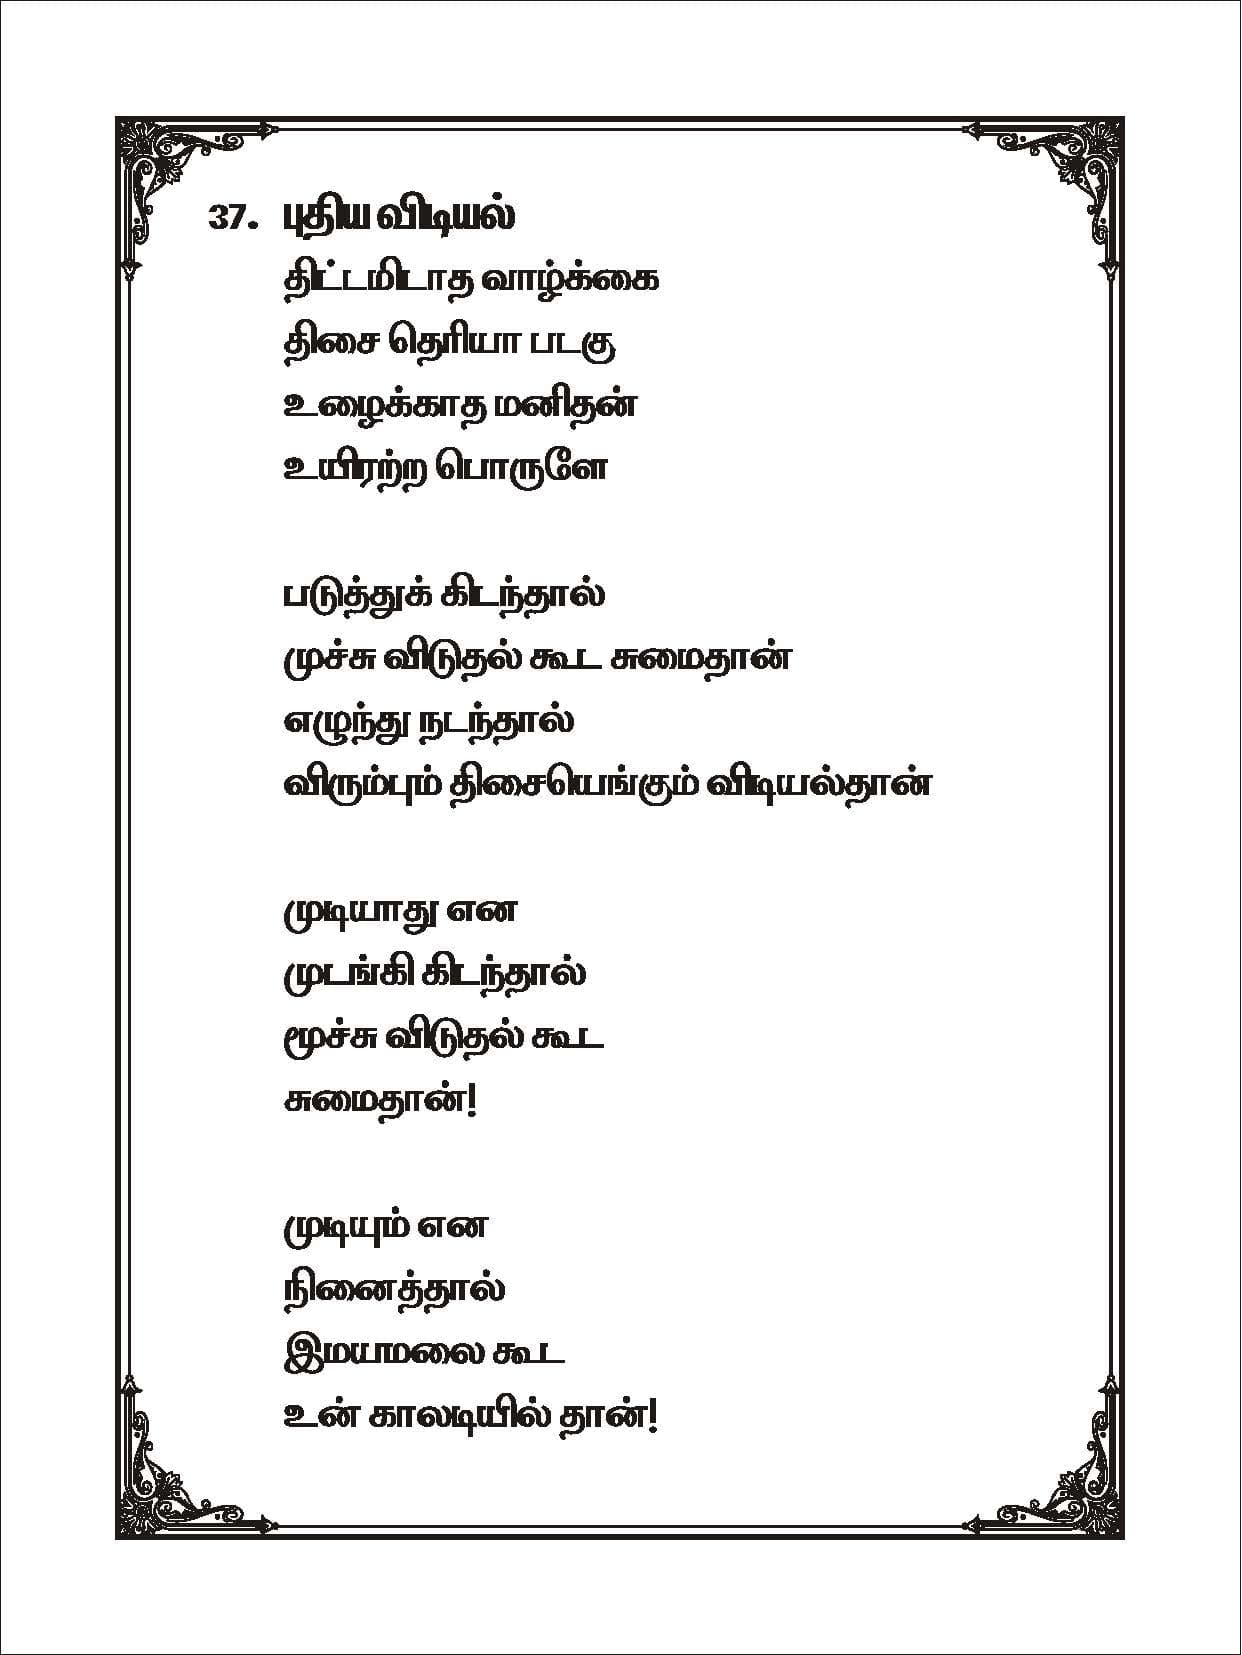 37. புதிய விடியல்
திட்டமிடாத வாழ்க்கை
திசை தெரியா படகு
உழைக்காத மனிதன்
உயிரற்ற பொருளே
படுத்துக் கிடந்தால்
முச்சு விடுதல் கூட சுமைதான்
எழுந்து நடந்தால்
விரும்பும் திசையெங்கும் விடியல்தான்
முடியாது என
முடங்கி கிடந்தால்
மூச்சு விடுதல் கூட
சுமைதான்!
முடியும் என
நினைத்தால்
இமயமலை கூட
உன் காலடியில் தான்!